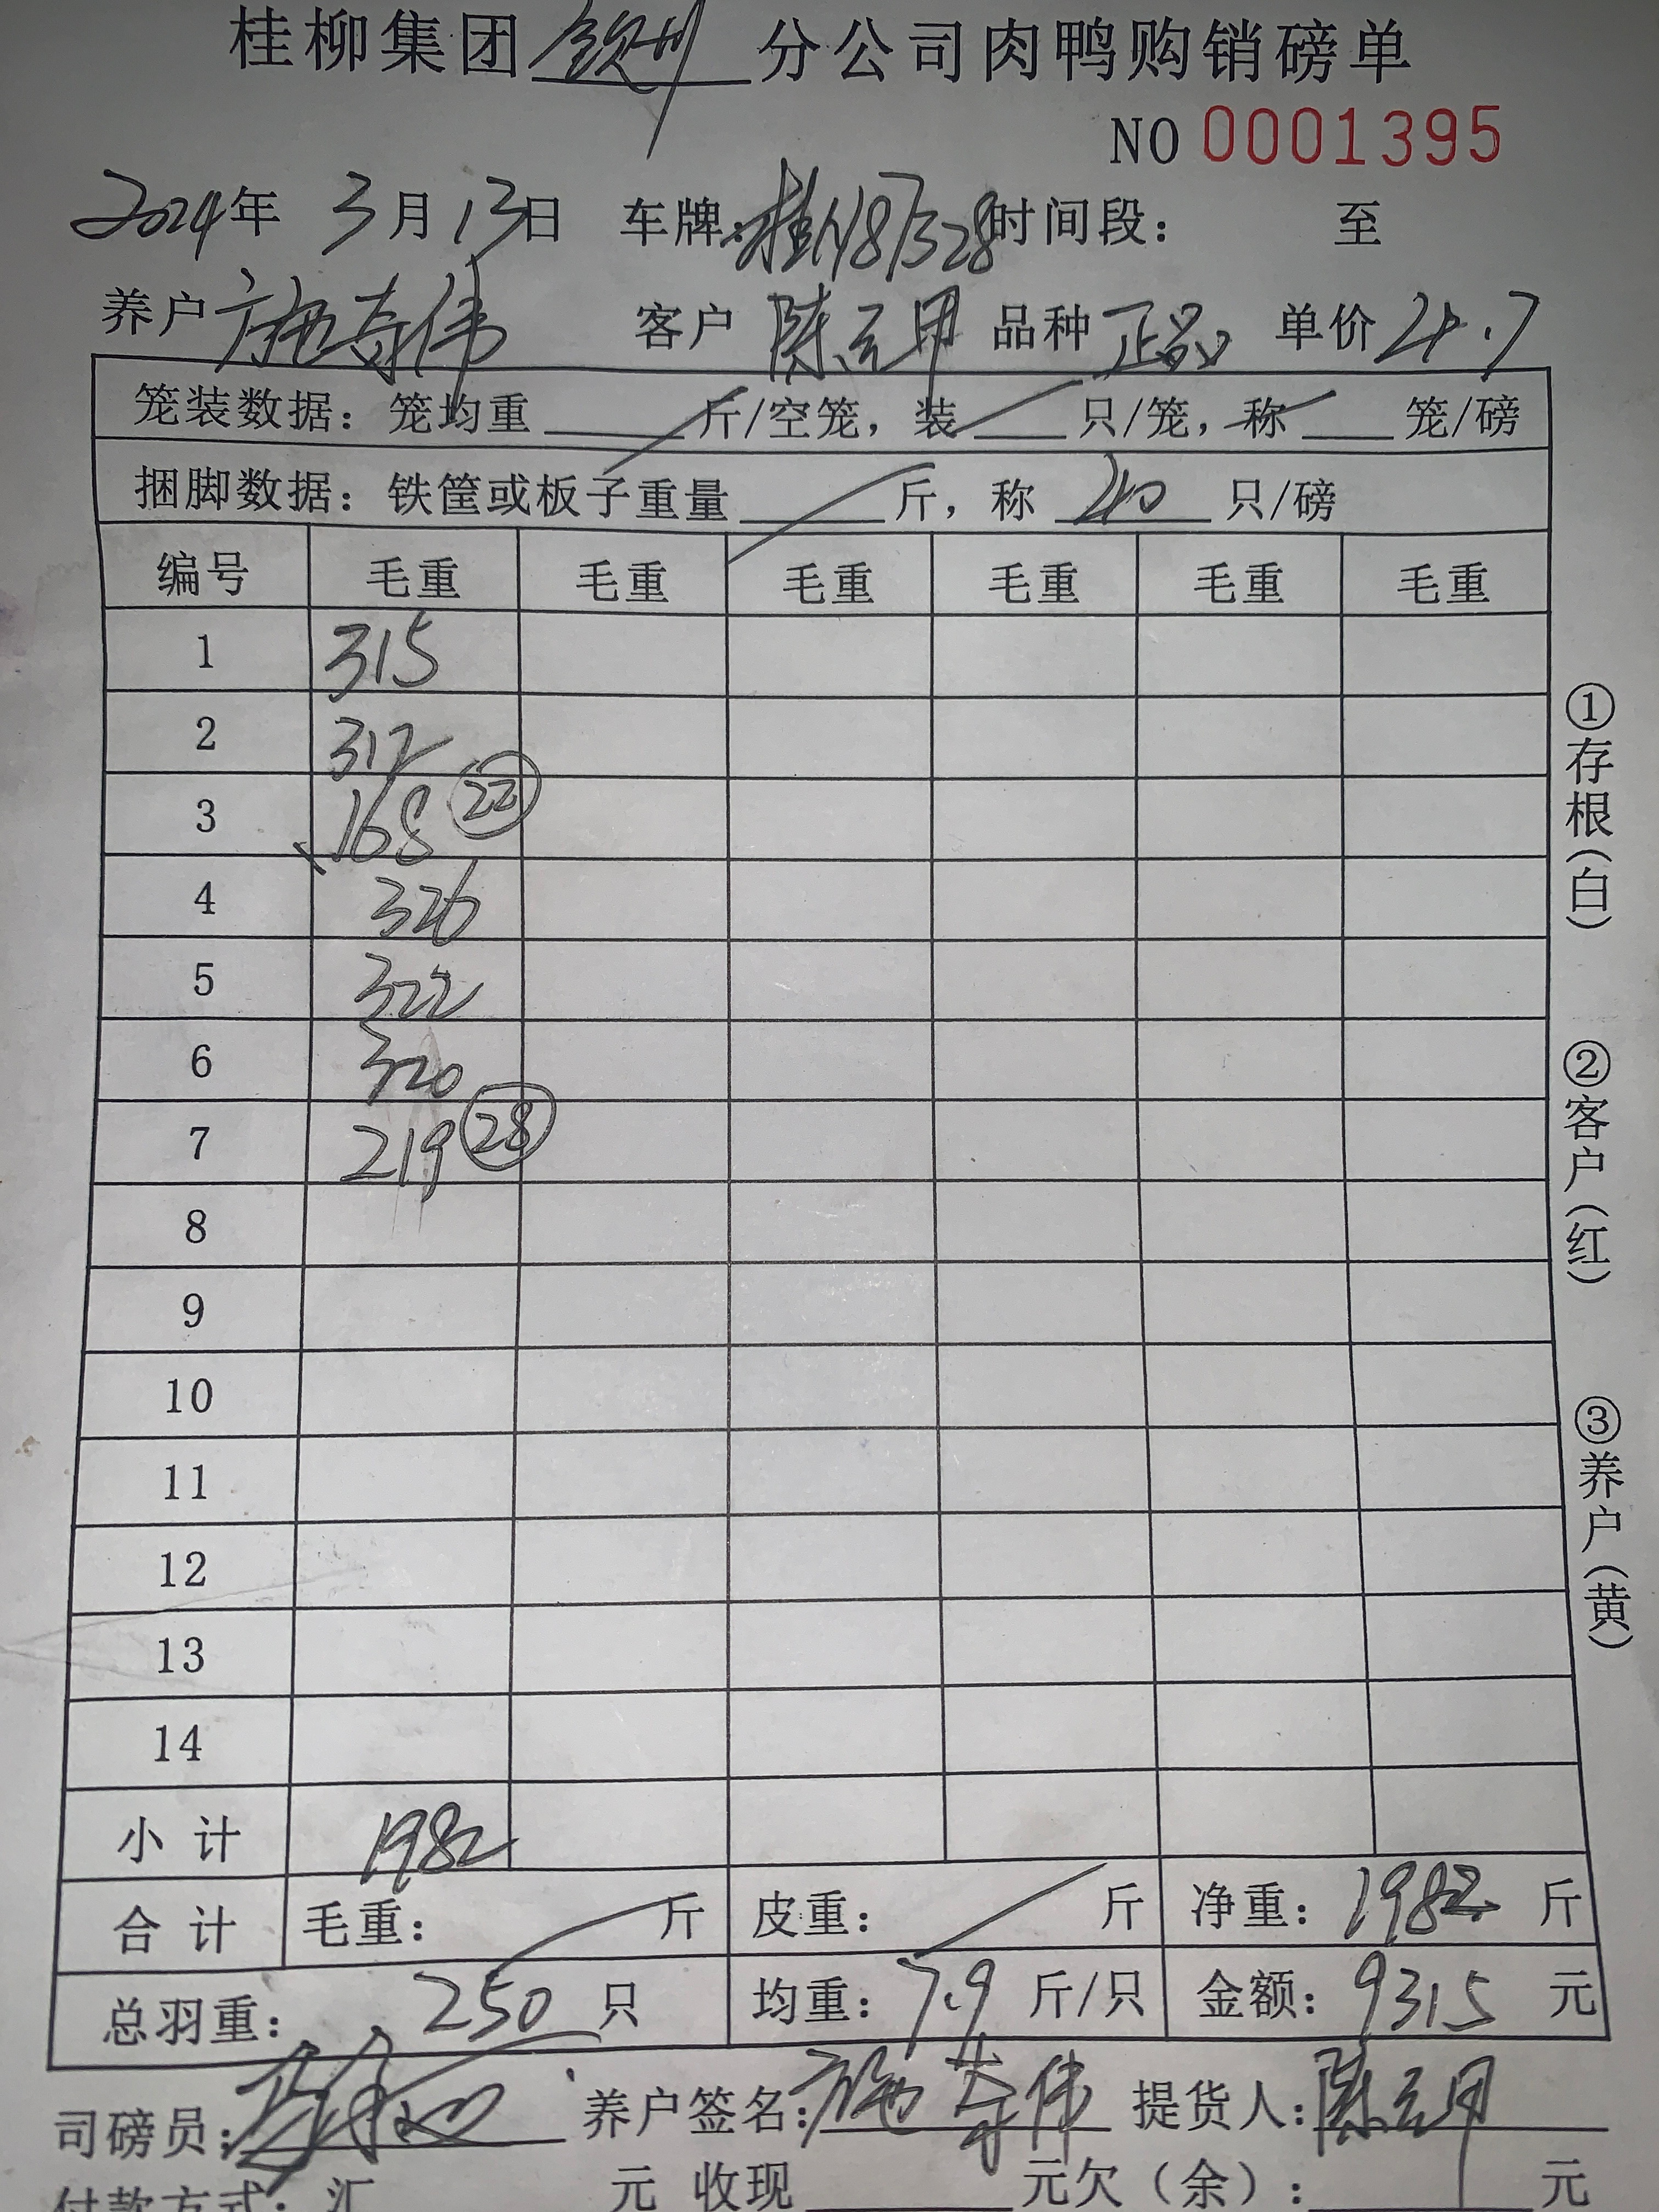 桂柳集团钦州分公司肉鸭购销磅单
NO 0001395
2024年 3月13日 车牌: 时间段: 至
养户 施 伟 客户 陈云甲 品种 正品 单价 4.7
笼装数据: 笼均重 斤/空笼, 装 只/笼, 称 笼/磅
捆脚数据: 铁筐或板子重量 斤, 称 40 只/磅
编号 毛重 毛重 毛重 毛重 毛重 毛重
1 315
2 312
3 168 22
4 326
5 322
6 320
7 219 28
8
9
10
11
12
13
14
小 计 1982
合 计 毛重: 斤 皮重: 斤 净重: 1982 斤
总羽重: 250 只 均重: 7.9 斤/只 金额: 9315 元
司磅员: 养户签名: 施 伟 提货人: 陈云甲
付款方式: 汇 元 收现 元欠(余): 元
①存根(白)
②客户(红)
③养户(黄)